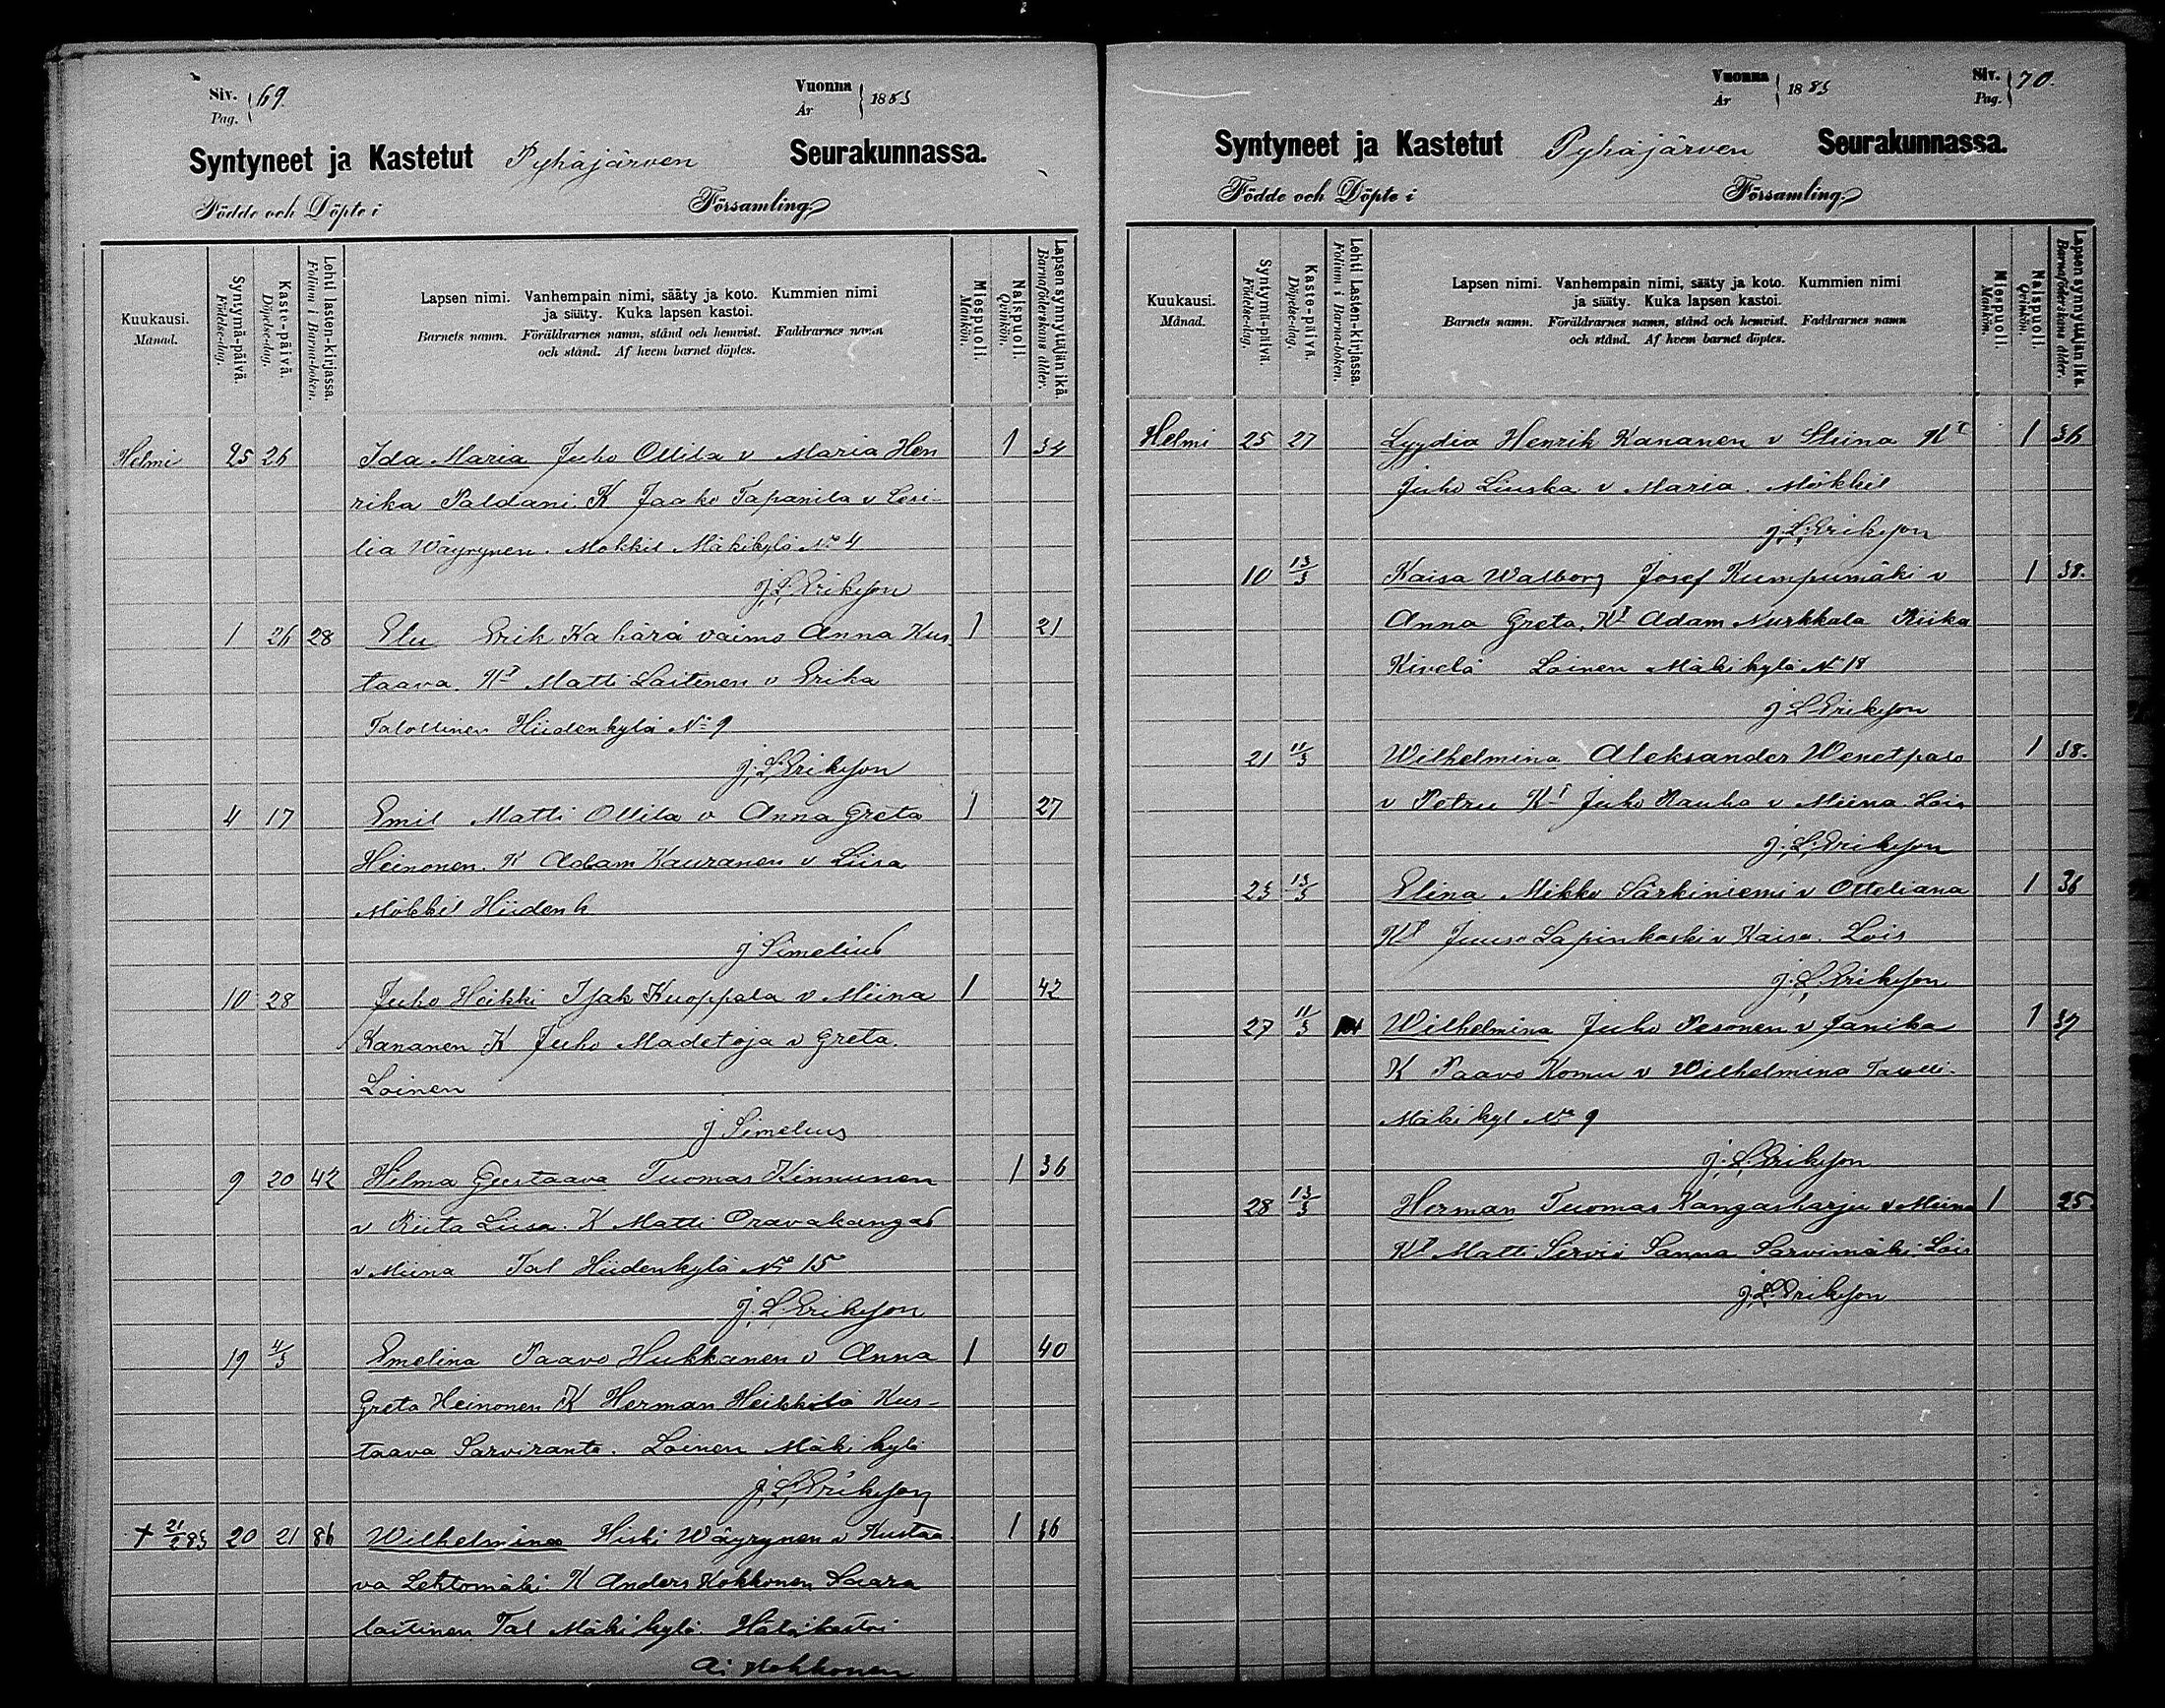 Siv. Pag. 69.
Vuonna År 1883
Syntyneet ja Kastetut Pyhäjärven Seurakunnassa.
Födde och Döpte i Församling.
Kuukausi. Månad.
Syntymä-päivä. Födelse-dag.
Kaste-päivä. Döpelse-dag.
Lehti lasten-kirjassa. Folium i Barna-boken.
Lapsen nimi. Vanhempain nimi, sääty ja koto. Kummien nimi
ja sääty. Kuka lapsen kastoi.
Barnets namn. Föräldrarnes namn, stånd och hemvist. Faddrarnes namn
och stånd. Af hvem barnet döptes.
Miespuoli. Mankön.
Naispuoli. Qvinkön.
Lapsen synnyttäjän ikä. Barnaföderskans ålder.
Helmi 25 26 Ida Maria Juho Ollila v Maria Hen 1 34
rika Paldani. K Jaako Tapanila v Cesi-
lia Wäyrynen. Mökkil Mäkikylä No 4
J. L. Erikson
1 26 28 Elu Erik Kahärä vaimo Anna Kus 1 21
taava. Kt Matti Laitenen v Erika
Talollinen Hiidenkylä No 9
J. L. Erikson
4 17 Emil Matti Ollila v Anna Greta 1 27
Heinonen. K Adam Kauranen v Liisa
Mökkil Hiidenk
J Simelius
10 28 Juho Heikki Isak Kuoppala v Miina 1 42
Kananen K Juho Madetoja v Greta.
Loinen
J Simelius
9 20 42 Hilma Gustaava Tuomas Kinnunen 1 36
v Riita Liisa. K Matti Oravakangas
v Miina Tal Hiidenkylä No 15
J. L. Erikson
19 4/3 Emelina Paavo Hukkanen v Anna 1 40
Greta Heinonen K Herman Heikkilä Kus-
taava Sarviranta. Loinen Mäki kylä
J. L. Erikson
+ 21/2 83 20 21 86 Wilhelmina Hiski Wäyrynen v Kustaa 1 36
va Lehtomäki K Anders Kokkonen Saara
laitinen Tal Mäki kylä. Hätäkastoi
A: Kokkonen
Vuonna År 1883
Siv. Pag. 70.
Syntyneet ja Kastetut Pyhäjärven Seurakunnassa.
Födde och Döpte i Församling.
Kuukausi. Månad.
Syntymä-päivä. Födelse-dag.
Kaste-päivä. Döpelse-dag.
Lehti Lasten-kirjassa. Folium i Barna-boken.
Lapsen nimi. Vanhempain nimi, sääty ja koto. Kummien nimi
ja sääty. Kuka lapsen kastoi.
Barnets namn. Föräldrarnes namn, stånd och hemvist. Faddrarnes namn
och stånd. Af hvem barnet döptes.
Miespuoli. Mankön.
Naispuoli. Qvinkön.
Lapsen synnyttäjän ikä. Barnaföderskans ålder.
Helmi 25 27 Lyydia Henrik Kananen v Stiina Kt 1 36
Juho Liuska v Maria. Mökkil
J. L. Erikson
10 13/3 Kaisa Walborg Josef Kumpumäki v 1 38.
Anna Greta. Kt Adam Nurkkala Riika
Kivelä Loinen Mäki kylä No 18
J L Erikson
21 11/3 Wilhelmina Aleksander Wenetpalo 1 38.
v Petru Kt Juho Rauha v Miina Lois
J. L. Erikson
23 13/3 Elina Mikko Särkiniemi v Otteliana 1 36
Kt Juuso Lapinkoski v Kaisa. Lois
J. L. Erikson
27 11/3 Wilhelmina Juho Pesonen v Janika 1 37
K Paavo Komu v Wilhelmina
Mäki kyl No 9
J. L. Erikson
28 13/3 Herman Tuomas Kangasharju v Miina 1 25.
Kt Matti Servio Sanna Sarvimäki Lois
J. L. Erikson